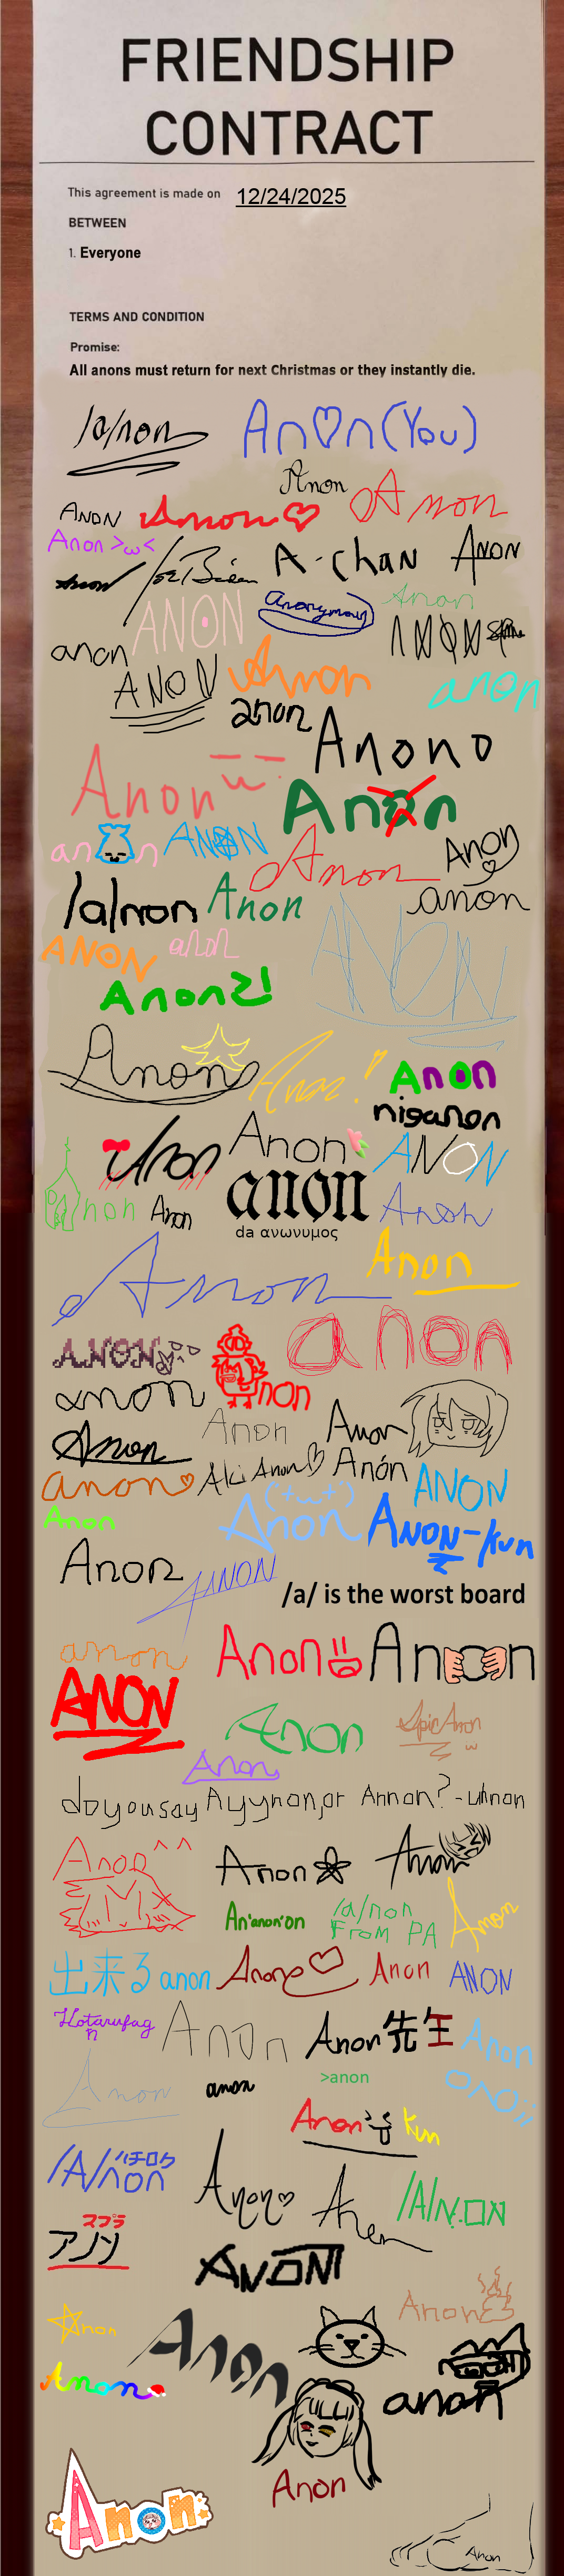 FRIENDSHIP
CONTRACT
This agreement is made on 12/24/2025
BETWEEN
1. Everyone
TERMS AND CONDITION
Promise:
All anons must return for next Christmas or they instantly die.
/a/non
An♡n(You)
Anon
ANON
Anon♡
Anon
Anon >ω<
Joe Biden
A-chan
ANON
Anon
ANON
Anonymous
Anon
anon
ANON
Anon
anon
anon
Anono
Anon
Anon
an n
ANON
Anon
Anon
♡
/a/non
Anon
anon
ANON
anon
ANON
Anon2!
Anon
Anon!!
Anon
niganon
Anon
Anon
ANON
Anon
anon
da ανωνυμος
Anon
non
Anon
Anon
ANON
non
anon
anon
Anon
Anon
Anon
anon♡
Aki Anon♡
Anón
ANON
Anon
('+ω+')
Anon
ANON-kun
Anon
ANON
/a/ is the worst board
anon
Anon
Anon
ANON
Anon
EpicAnon
ω
Anon
do you say Ayynon, or Annon? - uhnon
Anon ^^
Anon
Anon
An'anon'on
/a/non
From PA
Anon
出来る anon
Anon♡
Anon
ANON
Hotarufag
n
Anon
Anon先生
Anon
Anon
anon
>anon
Anon
kun
/A/non
ハチロク
Anon♡
Anon
/A/N.ON
マプラ
アノン
ANON
Anon
Anon
Anon
Anon
anon
Anon
Anon
Anon